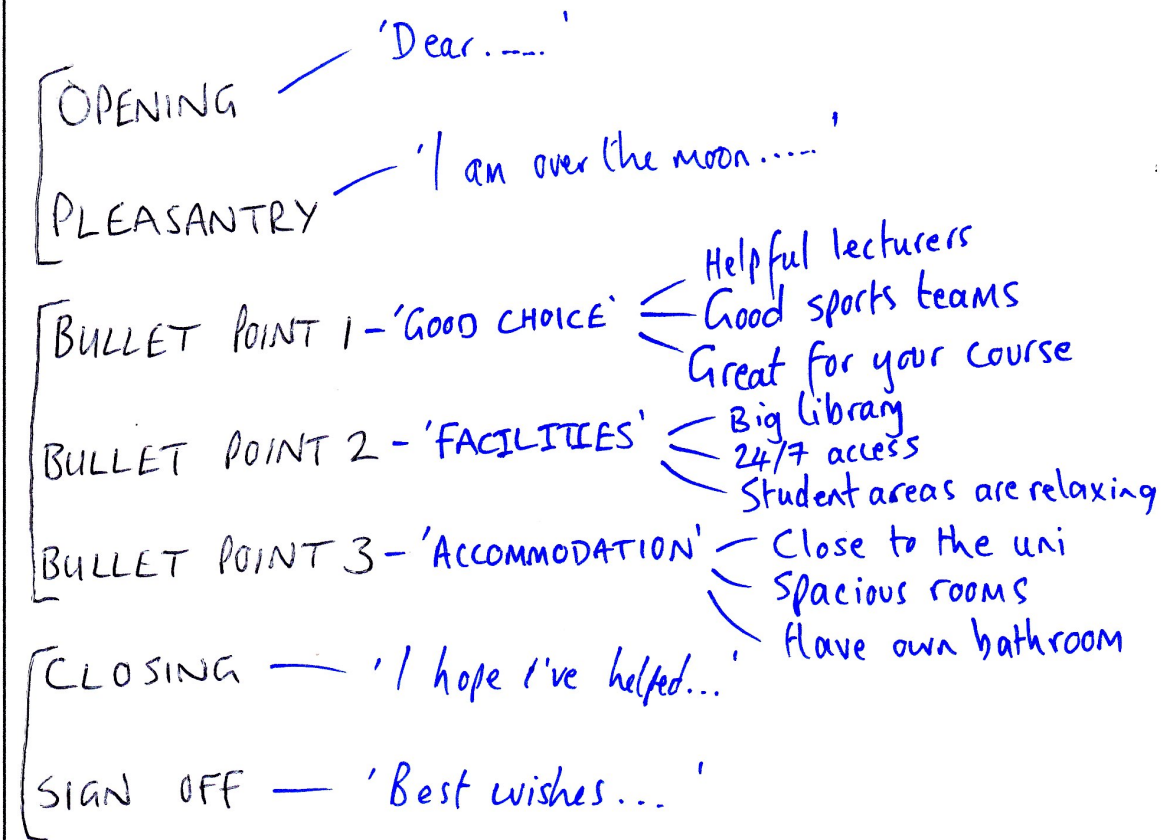 OPENING — 'Dear.....'
PLEASANTRY — 'I am over the moon.....'
BULLET POINT 1 - 'GOOD CHOICE'
Helpful lecturers
Good sports teams
Great for your course
BULLET POINT 2 - 'FACILITIES'
Big library
24/7 access
Student areas are relaxing
BULLET POINT 3 - 'ACCOMMODATION'
Close to the uni
Spacious rooms
Have own bathroom
CLOSING — 'I hope I've helped...'
SIGN OFF — 'Best wishes...'